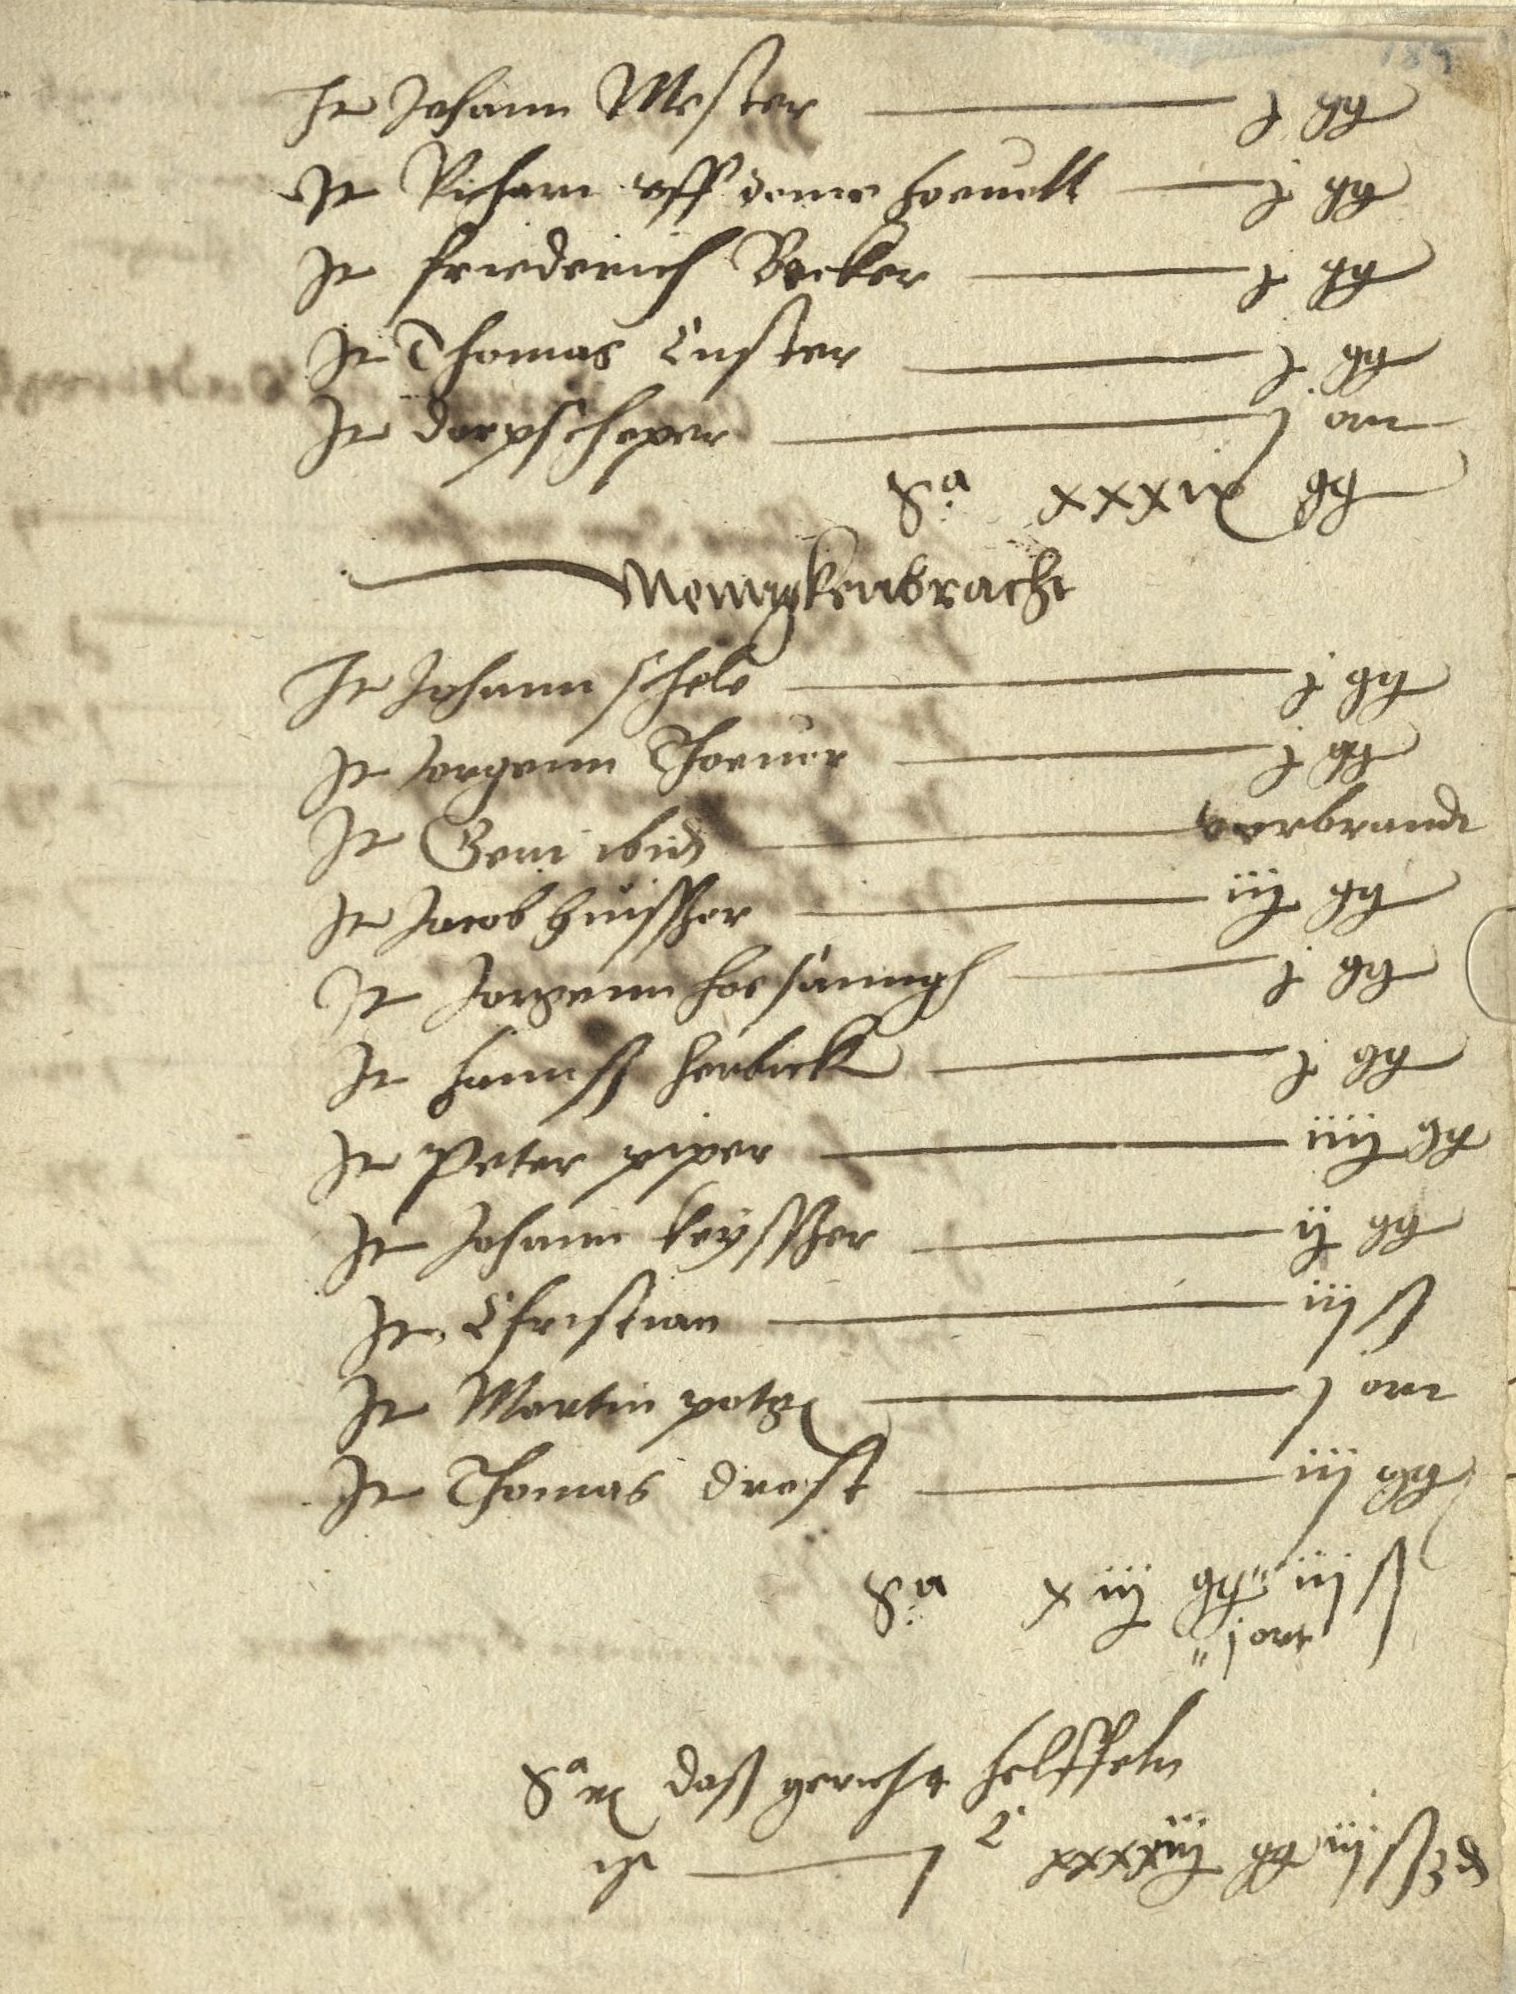 189
It Johann Mester j gg
It Richarn vff deme hoeuell j gg
It friederich Becker j gg
It Thomas Custer j gg
It dorpscheper j ort
Sa xxxix gg
Mennigkenbracht
It Johann schele j gg
It Jorgenn Thoener j gg
It ibid verbrandt
It Jacob huissher iij gg
It Jorgenn j gg
It hannß herbeck j gg
It Peter piper iiij gg
It Johann keyssher ij gg
It Christian iiij ß
It Martin j ort
It Thomas drost iij gg
Sa x iiij gg iiij ß
j ort
Sa daß gericht helffeln
ist j C xxxxiiij gg iiij ß 3 d